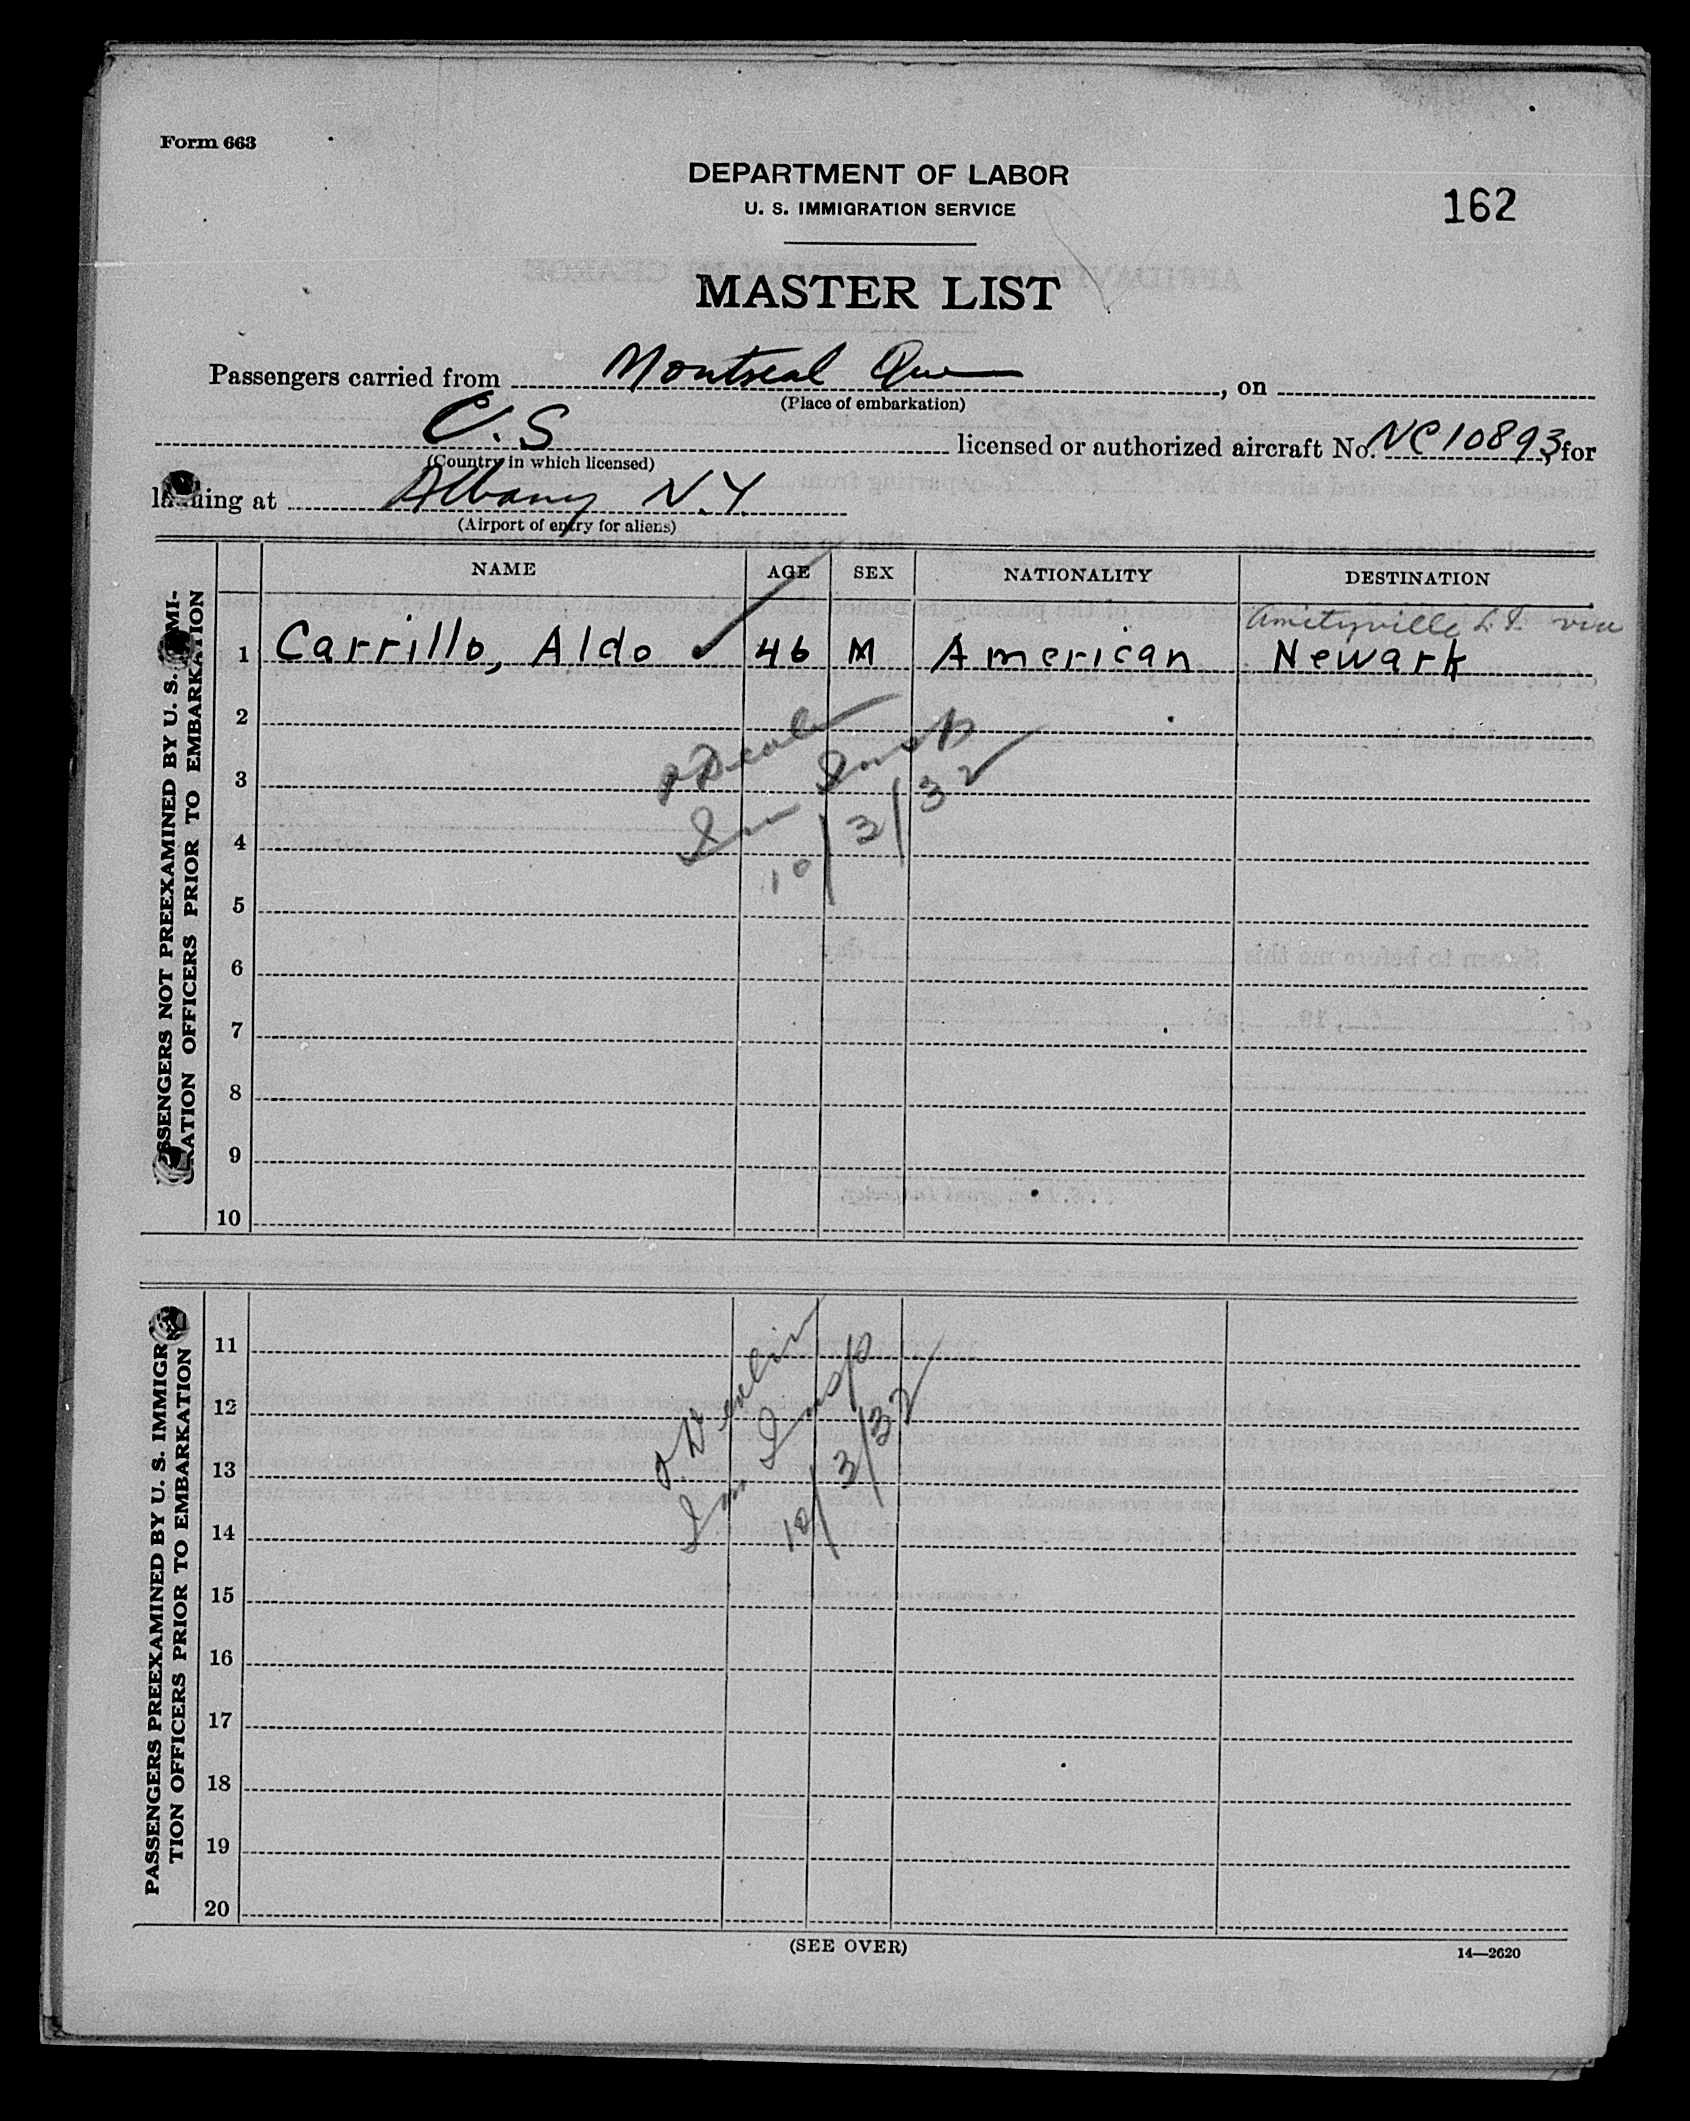 Form 663
DEPARTMENT OF LABOR
U. S. IMMIGRATION SERVICE
162
MASTER LIST
Passengers carried from Montreal Que, on
(Place of embarkation)
U.S licensed or authorized aircraft No. NC10893, for
(Country in which licensed)
landing at Albany N.Y.
(Airport of entry for aliens)
PASSENGERS NOT PREEXAMINED BY U. S. IMMI-
GRATION OFFICERS PRIOR TO EMBARKATION
NAME AGE SEX NATIONALITY DESTINATION
Amityville L.I. via
1 Carrillo, Aldo ✓ 46 M American Newark
2
3
4
5
6
7
8
9
10
Imm Insp
10/3/32
PASSENGERS PREEXAMINED BY U. S. IMMIGRA-
TION OFFICERS PRIOR TO EMBARKATION
11
12
13
14
15
16
17
18
19
20
Devlin
Imm Insp
10/3/32
(SEE OVER)
14—2620